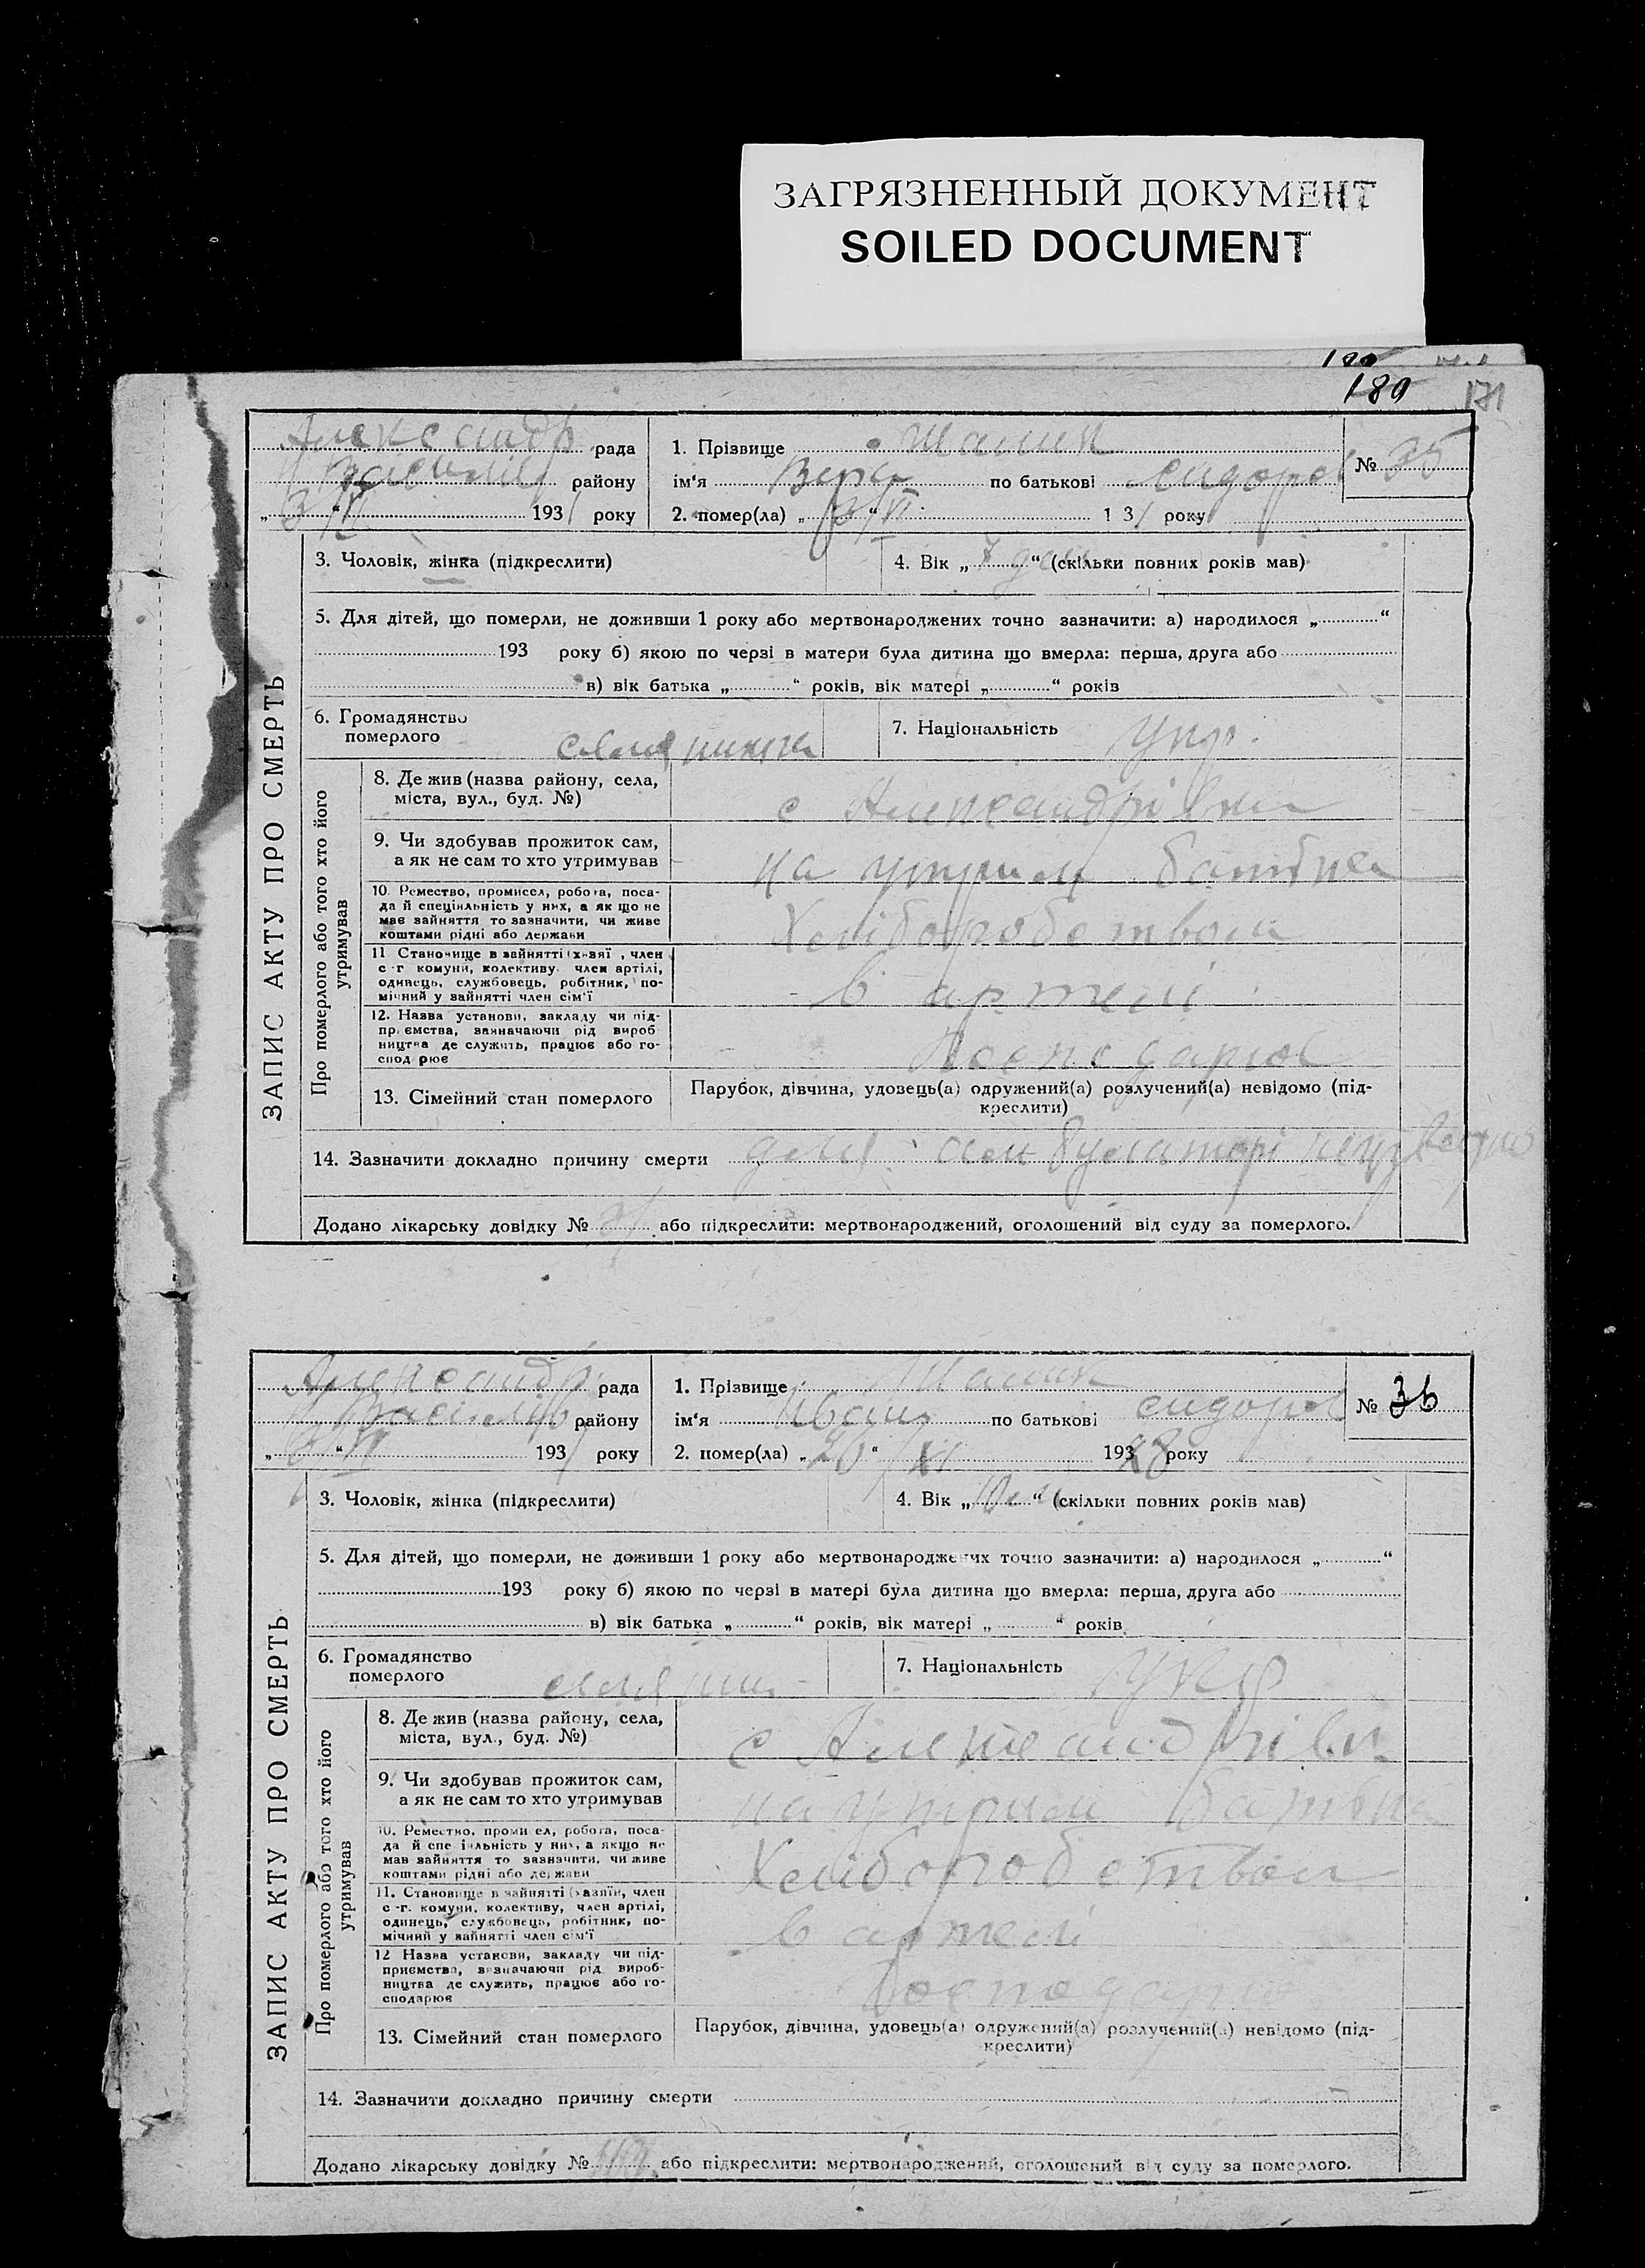 ЗАГРЯЗНЕННЫЙ ДОКУМЕНТ
SOILED DOCUMENT
180 171
ЗАПИС АКТУ ПРО СМЕРТЬ
Александр рада
району
„3“ VI 1931 року
1. Прізвище Шашик № 35
ім‘я Вера по батькові Сидоров
2. помер(ла) „3“ VI 1 31 року
3. Чоловік, жінка (підкреслити)
4. Вік „ “ (скільки повних років мав)
5. Для дітей, що померли, не доживши 1 року або мертвонароджених точно зазначити: а) народилося „ “
193 року б) якою по черзі в матери була дитина що вмерла: перша, друга або
в) вік батька „ “ років, вік матері „ “ років
6. Громадянство
померлого селянинка
7. Національність Укр.
Про померлого або того хто його
утримував
8. Де жив (назва району, села,
міста, вул., буд. №)
с Александрівки
9. Чи здобував прожиток сам,
а як не сам то хто утримував
на утрим батька
10. Ремество, промисел, робота, поса-
да й спеціяльність у них, а як що не
має зайняття то зазначити, чи живе
коштами рідні або держави
Хліборобством
11 Становище в зайнятті (х зяї , член
с-г комуни, колективу член артілі,
одинець, службовець, робітник, по-
мічний у зайнятті член сім‘ї
в артелі
12. Назва установи, закладу чи під-
пр ємства, зазначаючи рід вироб
ництва де служить, працює або го-
спод рює
Господарює
13. Сімейний стан померлого
Парубок, дівчина, удовець(а) одружений(а) розлучений(а) невідомо (під-
креслити)
14. Зазначити докладно причину смерти
Додано лікарську довідку № або підкреслити: мертвонароджений, оголошений від суду за померлого.
ЗАПИС АКТУ ПРО СМЕРТЬ
Александр рада
району
„ “ VI 1931 року
1. Прізвище Шашик № 36
ім‘я Иван по батькові Сидоров
2. помер(ла) „26“ XI 1928 року
3. Чоловік, жінка (підкреслити)
4. Вік „ “ (скільки повних років мав)
5. Для дітей, що померли, не доживши 1 року або мертвонароджених точно зазначити: а) народилося „ “
193 року б) якою по черзі в матері була дитина що вмерла: перша, друга або
в) вік батька „ “ років, вік матері „ “ років
6. Громадянство
померлого селянин
7. Національність Укр
Про померлого або того хто його
утримував
8. Де жив (назва району, села,
міста, вул., буд. №)
с Александрівки
9. Чи здобував прожиток сам,
а як не сам то хто утримував
на утрим батька
10. Ремество, проми ел, робота, поса-
да й спе іяльність у них, а якщо не
мав зайняття то зазначити, чи живе
коштами рідні або держави
Хліборобством
11. Становище в зайнятті (хазяїн, член
с-г. комуни, колективу, член артілі,
одинець, службовець, робітник, по-
мічний у зайнятті член сім‘ї
в артелі
12 Назва установи, закладу чи під-
приємства, зазначаючи рід вироб-
ництва де служить, працює або го-
сподарює
Господарює
13. Сімейний стан померлого
Парубок, дівчина, удовець(а) одружений(а) розлучений(а) невідомо (під-
креслити)
14. Зазначити докладно причину смерти
Додано лікарську довідку № або підкреслити: мертвонароджений, оголошений від суду за померлого.